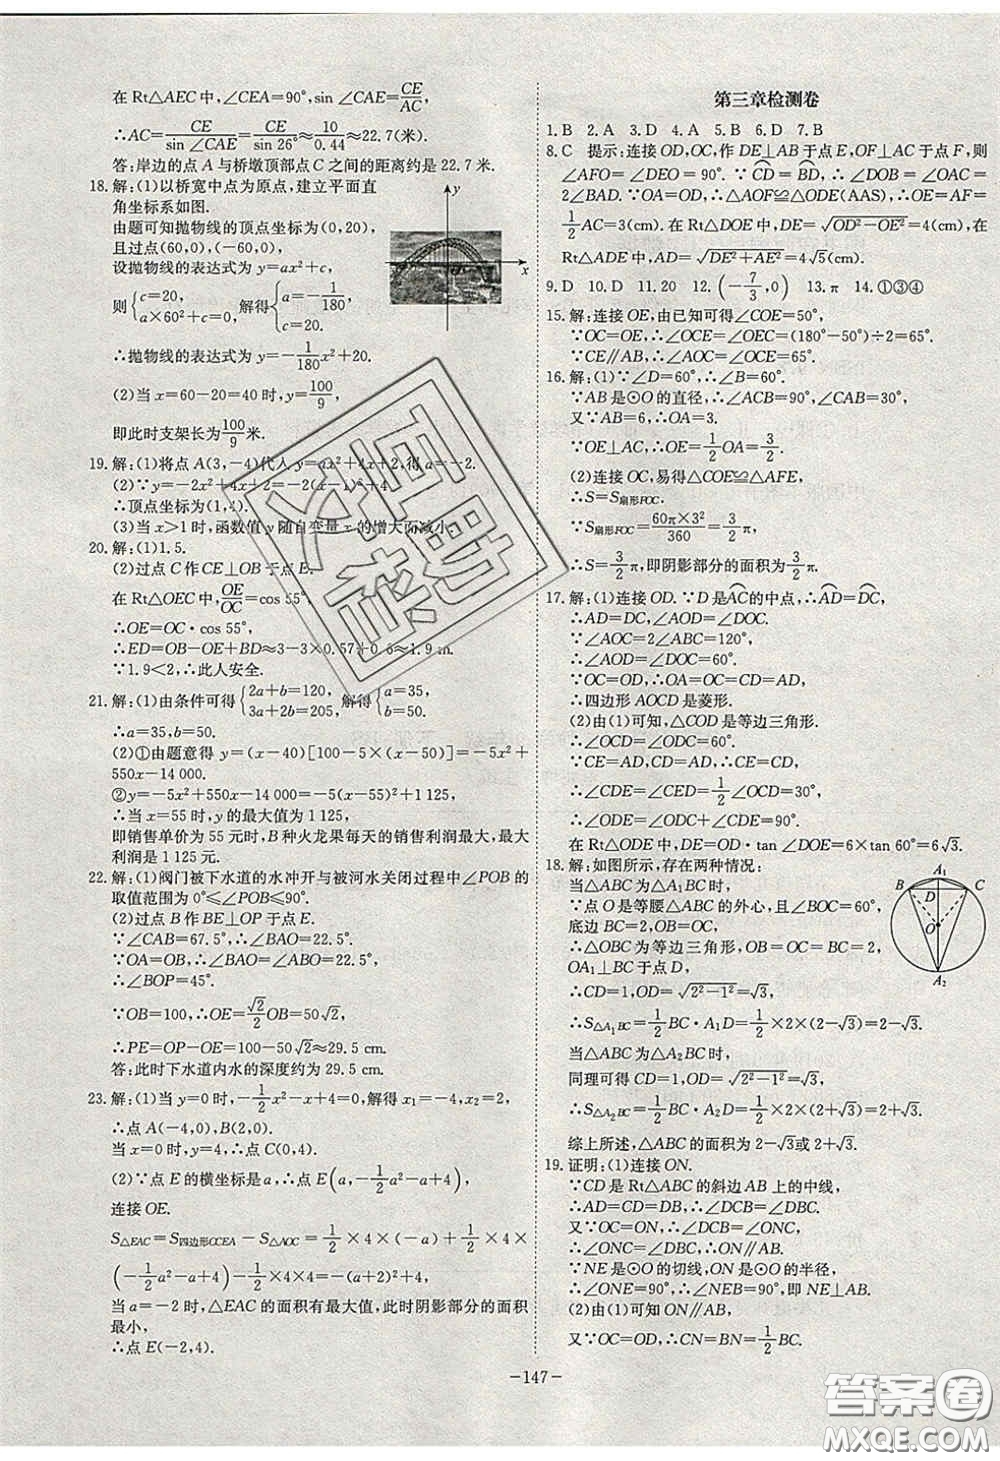 在 Rt△AEC 中,∠CEA=90°,sin ∠CAE=CE/AC,
∴AC=CE/sin ∠CAE=CE/sin 26°≈10/0.44≈22.7(米).
答:岸边的点 A 与桥墩顶部点 C 之间的距离约是 22.7 米.
18. 解:(1)以桥宽中点为原点,建立平面直
角坐标系如图.
由题可知抛物线的顶点坐标为(0,20),
且过点(60,0),(-60,0).
设抛物线的表达式为 y=ax²+c,
则{c=20, a×60²+c=0, 解得{a=-1/180, c=20.
∴抛物线的表达式为 y=-1/180x²+20.
(2)当 x=60-20=40 时,y=100/9,
即此时支架长为100/9米.
19. 解:(1)将点 A(3,-4)代入 y=ax²+4x+2,得 a=-2.
(2)∵y=-2x²+4x+2=-2(x-1)²+4,
∴顶点坐标为(1,4).
(3)当 x>1 时,函数值 y 随自变量 x 的增大而减小.
20. 解:(1)1.5.
(2)过点 C 作 CE⊥OB 于点 E.
在 Rt△OEC 中,OE/OC=cos 55°,
∴OE=OC·cos 55°,
∴ED=OB-OE+BD≈3-3×0.57+0.6≈1.9 m.
∵1.9<2,∴此人安全.
21. 解:(1)由条件可得{2a+b=120, 3a+2b=205, 解得{a=35, b=50.
∴a=35,b=50.
(2)①由题意得 y=(x-40)[100-5×(x-50)]=-5x²+
550x-14 000.
②y=-5x²+550x-14 000=-5(x-55)²+1 125,
∴当 x=55 时,y 的最大值为 1 125,
即销售单价为 55 元时,B 种火龙果每天的销售利润最大,最大
利润是 1 125 元.
22. 解:(1)阀门被下水道的水冲开与被河水关闭过程中∠POB 的
取值范围为 0°≤∠POB≤90°.
(2)过点 B 作 BE⊥OP 于点 E.
∵∠CAB=67.5°,∴∠BAO=22.5°.
∵OA=OB,∴∠BAO=∠ABO=22.5°,
∴∠BOP=45°.
∵OB=100,∴OE=√2/2OB=50√2,
∴PE=OP-OE=100-50√2≈29.5 cm.
答:此时下水道内水的深度约为 29.5 cm.
23. 解:(1)当 y=0 时,-1/2x²-x+4=0,解得 x₁=-4,x₂=2,
∴点 A(-4,0),B(2,0).
当 x=0 时,y=4,∴点 C(0,4).
(2)∵点 E 的横坐标是 a,∴点 E(a,-1/2a²-a+4),
连接 OE.
S△EAC=S四边形OCEA-S△AOC=1/2×4×(-a)+1/2×4×
(-1/2a²-a+4)-1/2×4×4=-a²-4a.
当 a=-2 时,△EAC 的面积有最大值,此时阴影部分的面积
最小,
∴点 E(-2,4).
y
x
第三章检测卷
1. B 2. A 3. D 4. A 5. B 6. D 7. B
8. C 提示:连接 OD,OC,作 DE⊥AB 于点 E,OF⊥AC 于点 F,则
∠AFO=∠DEO=90°.∵CD=BD,∴∠DOB=∠OAC=
2∠BAD.∵OA=OD,∴△AOF≌△ODE(AAS),∴OE=AF=
1/2AC=3(cm).在 Rt△DOE 中,DE=√OD²-OE²=4(cm),在
Rt△ADE 中,AD=√DE²+AE²=4√5(cm).
9. D 10. D 11. 20 12. (-7/3,0) 13. π 14. ①③④
15. 解:连接 OE,由已知可得∠COE=50°,
∵OC=OE,∴∠OCE=∠OEC=(180°-50°)÷2=65°.
∵CE∥AB,∴∠AOC=∠OCE=65°.
16. 解:(1)∵∠D=60°,∴∠B=60°.
∵AB 是⊙O 的直径,∴∠ACB=90°,∠CAB=30°.
又∵AB=6,∴OA=3.
∵OE⊥AC,∴OE=1/2OA=3/2.
(2)连接 OC,易得△COE≌△AFE,
∴S=S扇形FOC.
∵S扇形FOC=60π×3²/360=3/2π,
∴S=3/2π,即阴影部分的面积为3/2π.
17. 解:(1)连接 OD.∵D 是AC的中点,∴AD=DC,
∴AD=DC,∠AOD=∠DOC.
∵∠AOC=2∠ABC=120°,
∴∠AOD=∠DOC=60°.
∵OC=OD,∴OA=OC=CD=AD,
∴四边形 AOCD 是菱形.
(2)由(1)可知,△COD 是等边三角形.
∴∠OCD=∠ODC=60°.
∵CE=AD,CD=AD,∴CD=CE,
∴∠CDE=∠CED=1/2∠OCD=30°,
∴∠ODE=∠ODC+∠CDE=90°.
在 Rt△ODE 中,DE=OD·tan ∠DOE=6×tan 60°=6√3.
18. 解:如图所示,存在两种情况:
当△ABC 为△A₁BC 时,
∵点 O 是等腰△ABC 的外心,且∠BOC=60°,
底边 BC=2,OB=OC,
∴△OBC 为等边三角形,OB=OC=BC=2,
OA₁⊥BC 于点 D,
∴CD=1,OD=√2²-1²=√3,
∴S△A₁BC=1/2BC·A₁D=1/2×2×(2-√3)=2-√3.
当△ABC 为△A₂BC 时,
同理可得 CD=1,OD=√2²-1²=√3,
∴S△A₂BC=1/2BC·A₂D=1/2×2×(2+√3)=2+√3.
综上所述,△ABC 的面积为 2-√3或 2+√3.
A₁
B
D
C
O
A₂
19. 证明:(1)连接 ON.
∵CD 是 Rt△ABC 的斜边 AB 上的中线,
∴AD=CD=DB,∴∠DCB=∠DBC.
又∵OC=ON,∴∠DCB=∠ONC,
∴∠ONC=∠DBC,∴ON∥AB.
∵NE 是⊙O 的切线,ON 是⊙O 的半径,
∴∠ONE=90°,∴∠NEB=90°,即 NE⊥AB.
(2)由(1)可知 ON∥AB,
又∵OC=OD,∴CN=BN=1/2BC.
-147-
答案圈
MXQE.COM